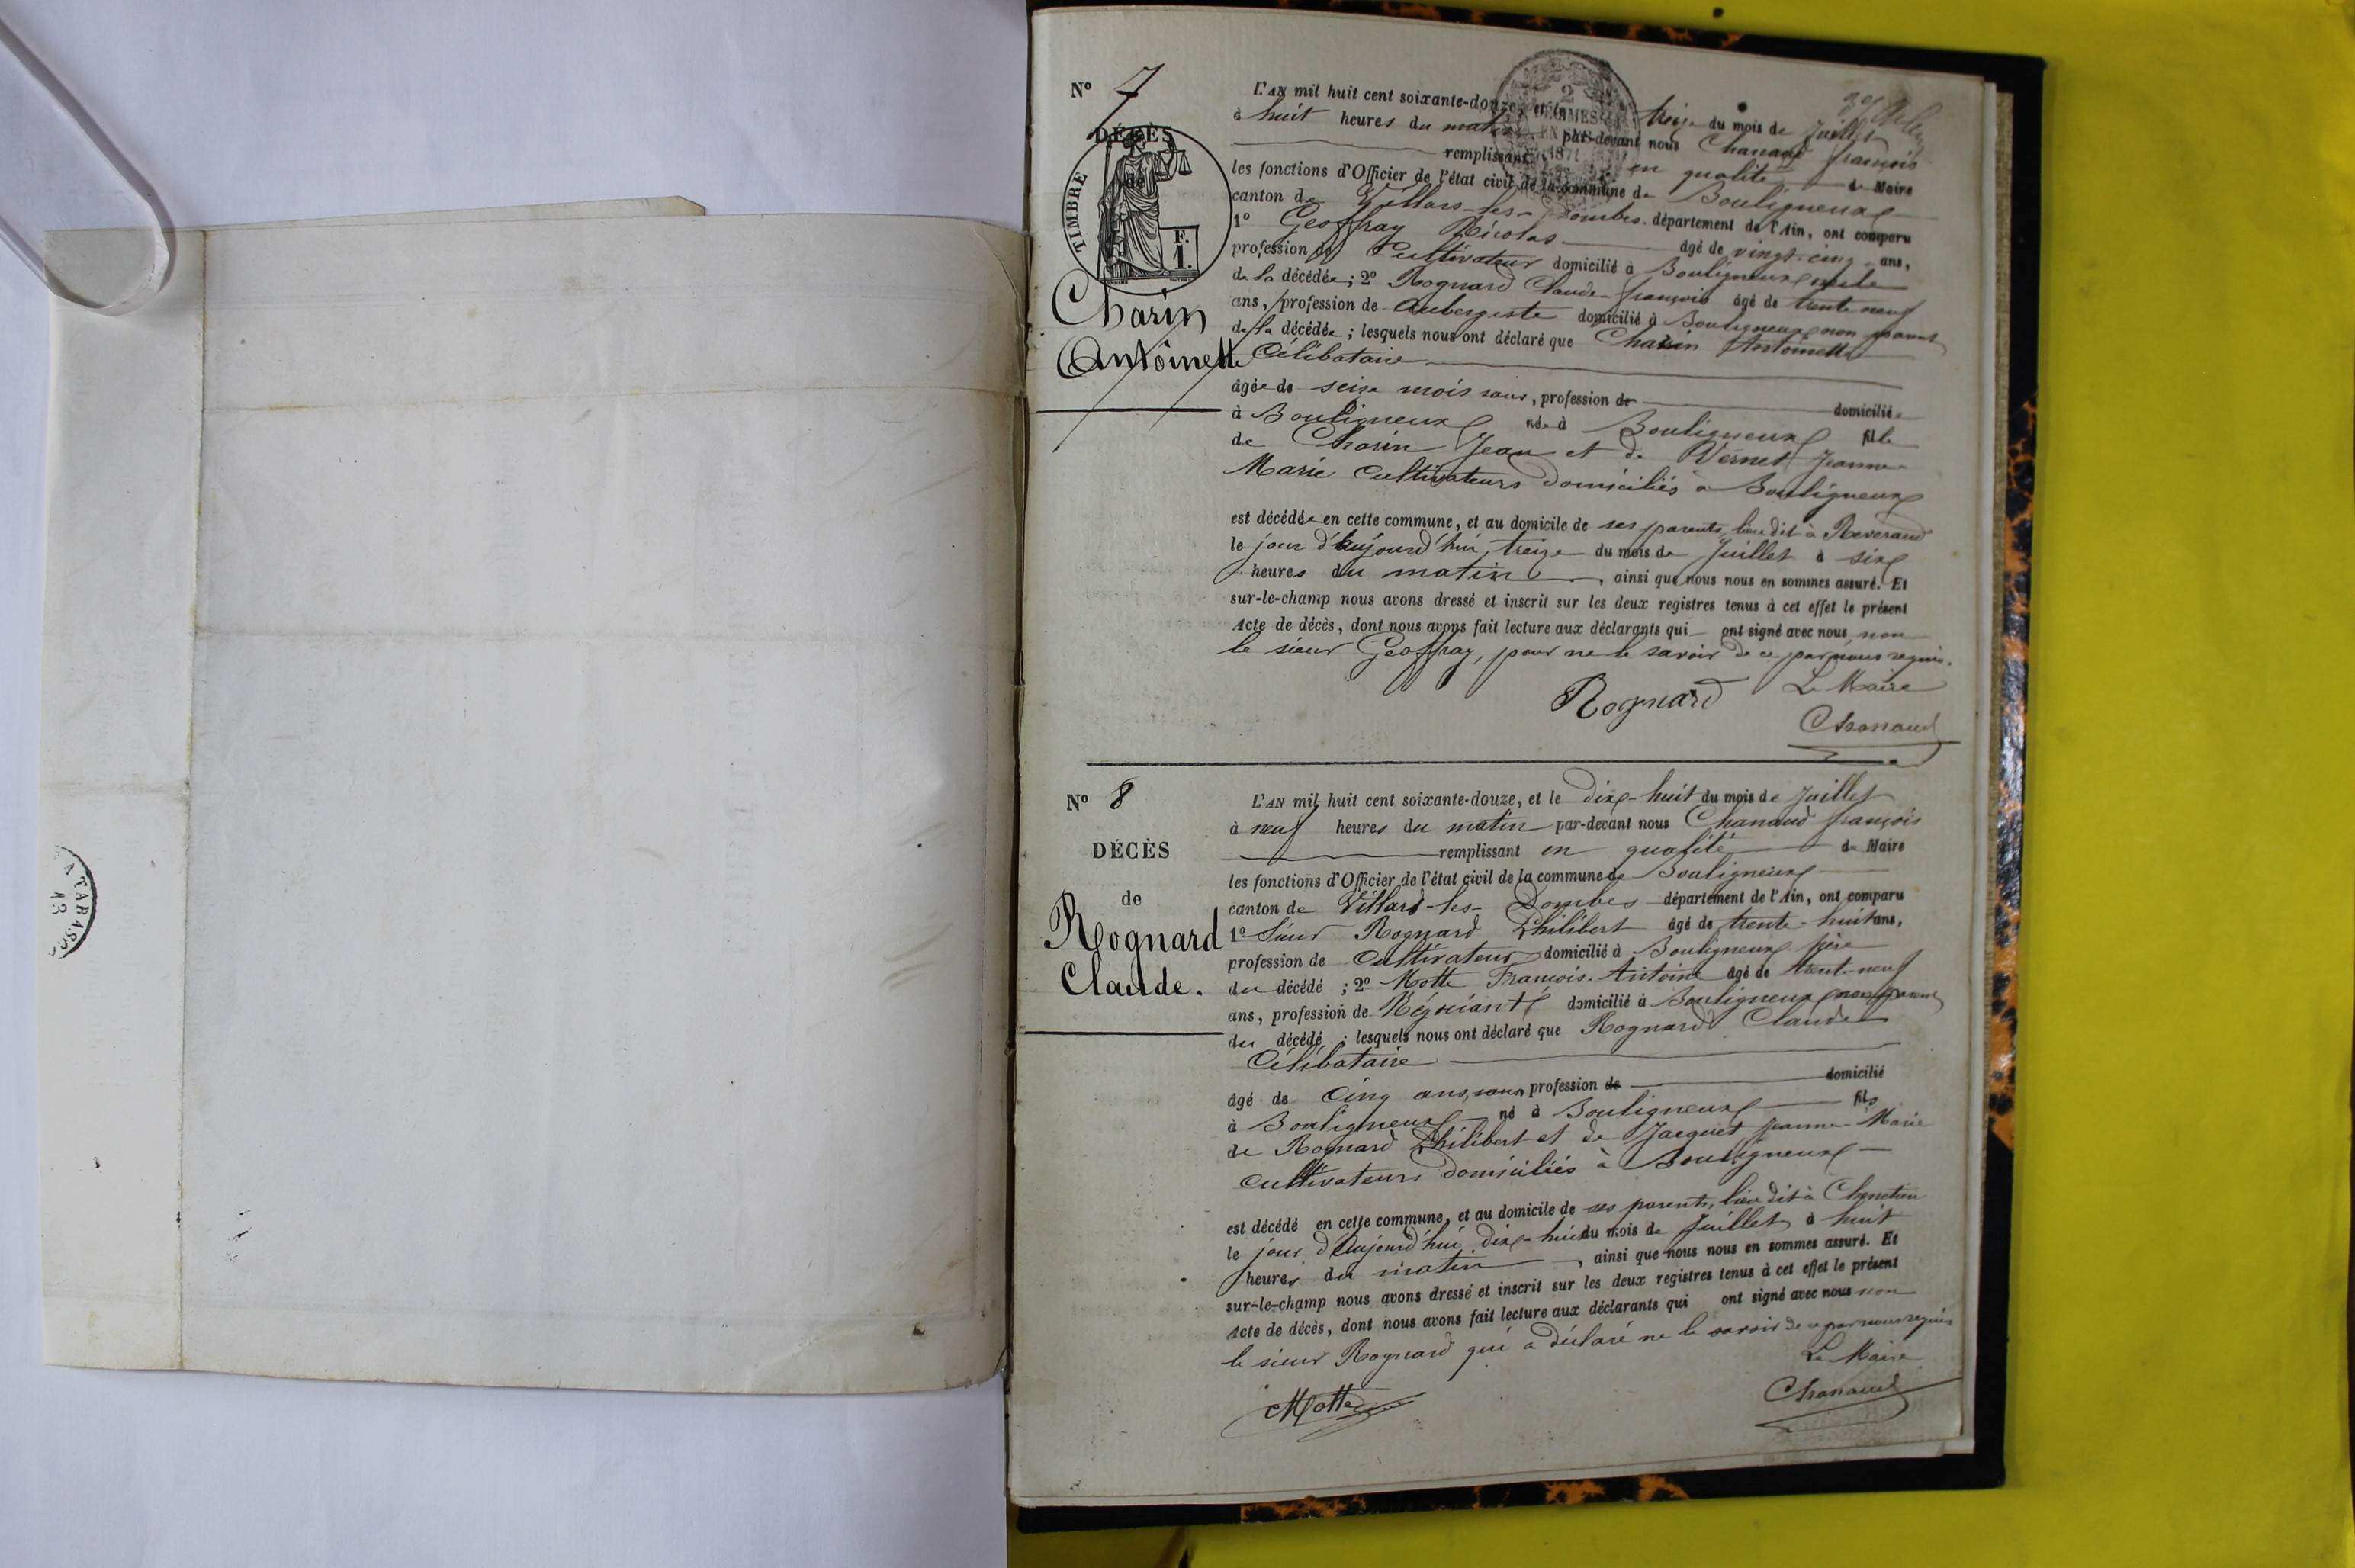 N° 7
DÉCÈS
de
TIMBRE
F.
1.
Charin
Antoinette
2
DÉCIMES
EN SUS
1871
L'AN mil huit cent soixante-douze, et le treize du mois de Juillet
à huit heures du matin par-devant nous Chanaud françois
remplissant en qualité de Maire
les fonctions d'Officier de l'état civil de la commune de Bouligneux
canton de Villars-les-Dombes département de l'Ain, ont comparu
1° Geoffray Nicolas âgé de vingt-cinq ans,
profession de Cultivateur domicilié à Bouligneux
de la décédée ; 2° Rognard Claude-françois âgé de trente-neuf
ans, profession de Aubergiste domicilié à Bouligneux non parent
de la décédée ; lesquels nous ont déclaré que Charin Antoinette
Célibataire
âgée de seize mois sans, profession de domiciliée
à Bouligneux née à Bouligneux fille
de Charin Jean et de Vernet Jeanne-
Marie Cultivateurs domiciliés à Bouligneux
est décédée en cette commune, et au domicile de ses parents, lieu dit à Reveraud
le jour d'aujourd'hui, treize du mois de Juillet à six
heures du matin, ainsi que nous nous en sommes assuré. Et
sur-le-champ nous avons dressé et inscrit sur les deux registres tenus à cet effet le présent
Acte de décès, dont nous avons fait lecture aux déclarants qui ont signé avec nous non
le sieur Geoffray, pour ne le savoir de ce par nous requis.
Rognard Le Maire
Chanaud
N° 8
DÉCÈS
de
Rognard
Claude.
L'AN mil huit cent soixante-douze, et le dix-huit du mois de Juillet
à neuf heures du matin par-devant nous Chanaud françois
remplissant en qualité de Maire
les fonctions d'Officier de l'état civil de la commune de Bouligneux
canton de Villars-les-Dombes département de l'Ain, ont comparu
1° Sieur Rognard Philibert âgé de trente-huit ans,
profession de Cultivateur domicilié à Bouligneux père
du décédé ; 2° Motte François-Antoine âgé de trente-neuf
ans, profession de Négociant domicilié à Bouligneux non parent
du décédé ; lesquels nous ont déclaré que Rognard Claude
Célibataire
âgé de Cinq ans, sans profession de domicilié
à Bouligneux né à Bouligneux fils
de Rognard Philibert et de Jacquet Jeanne-Marie
Cultivateurs domiciliés à Bouligneux
est décédé en cette commune, et au domicile de ses parents, lieu dit à
le jour d'Aujourd'hui dix-huit du mois de Juillet à huit
heures du matin, ainsi que nous nous en sommes assuré. Et
sur-le-champ nous avons dressé et inscrit sur les deux registres tenus à cet effet le présent
Acte de décès, dont nous avons fait lecture aux déclarants qui ont signé avec nous non
le sieur Rognard qui a déclaré ne le savoir de ce par nous requis
Le Maire
Motte Chanaud
TARASCO
13